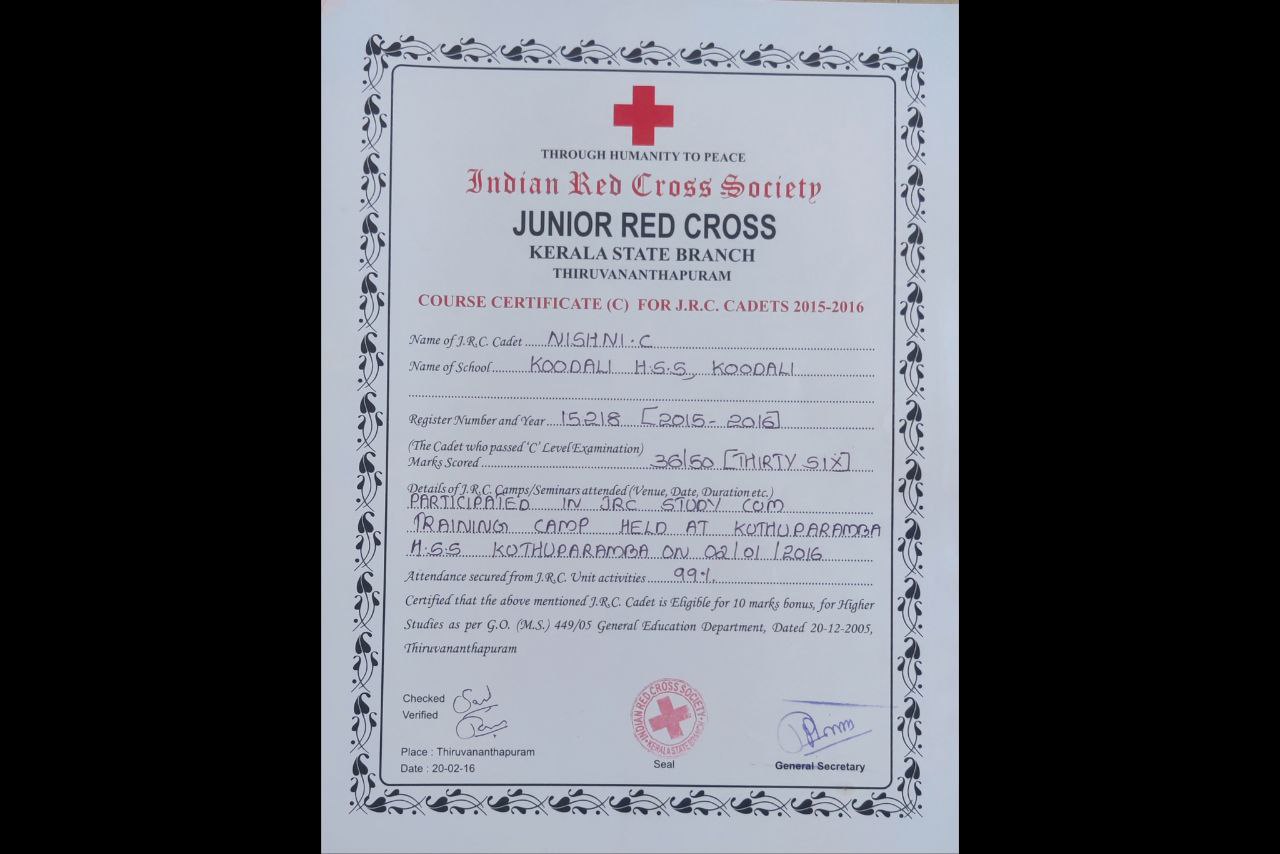 THROUGH HUMANITY TO PEACE
Indian Red Cross Society
JUNIOR RED CROSS
KERALA STATE BRANCH
THIRUVANANTHAPURAM
COURSE CERTIFICATE (C) FOR J.R.C. CADETS 2015-2016
Name of J.R.C. Cadet ..... NISHNI.C
Name of School ..... KOODALI H.S.S, KOODALI
Register Number and Year .... 15218 [2015-2016]
(The Cadet who passed 'C' Level Examination)
Marks Scored ..... 36/60 [THIRTY SIX]
Details of J.R.C. Camps/Seminars attended (Venue, Date, Duration etc.)
PARTICIPATED IN JRC STUDY COM
TRAINING CAMP HELD AT KUTHUPARAMBA
H.S.S KUTHUPARAMBA ON 02/01/2016
Attendance secured from J.R.C. Unit activities ..... 99%
Certified that the above mentioned J.R.C. Cadet is Eligible for 10 marks bonus, for Higher
Studies as per G.O. (M.S.) 449/05 General Education Department, Dated 20-12-2005,
Thiruvananthapuram
Checked
Verified
Place : Thiruvananthapuram
Date : 20-02-16
INDIAN RED CROSS SOCIETY
KERALA STATE BRANCH
Seal
General Secretary